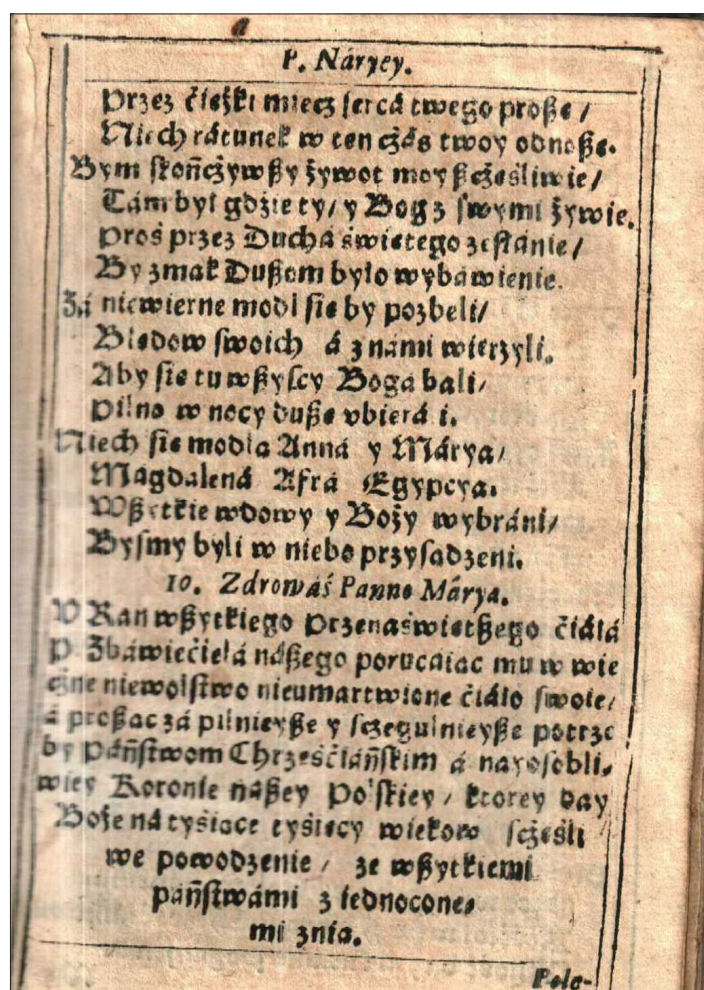 P. Náryey.
Przez ćieżki miecz sercá twego proßę /
Niech rátunek w ten cżás twoy odnoßę.
Bym skończywßy żywot moy ßcżęśliwie /
Tám był gdzie ty / y Bog z swymi żywie.
Proś przez Duchá świętego zesłánie /
By z mąk Dußom było wybáwienie.
Zá niewierne modl się by pozbeli /
Błędow swoich á z námi wierzyli.
Aby się tu wßyscy Bogá bali /
Pilno w nocy duße vbierá i.
Niech się modlą Anná y Márya /
Magdalená Afrá Egypcya.
Wßytkie wdowy y Boży wybráni /
Byśmy byli w niebo przysadzeni.
10. Zdrowáś Panno Márya.
V Ran wßytkiego Przenaświętßego ćiáłá
P. Zbáwićielá náßego porucáiąc mu w wie
cżne niewolstwo nieumartwione ćiáło swoie /
á proßąc zá pilnieyße y scżegulnieyße potrze
by Páństwom Chrześćiáńskim á nayosobli,
wiey Koronie náßey Polskiey / ktorey day
Boże ná tyśiące tyśięcy wiekow scżęśli
we powodzenie / ze wßytkiemi
páństwámi z iednocone,
mi znią.
Pole-